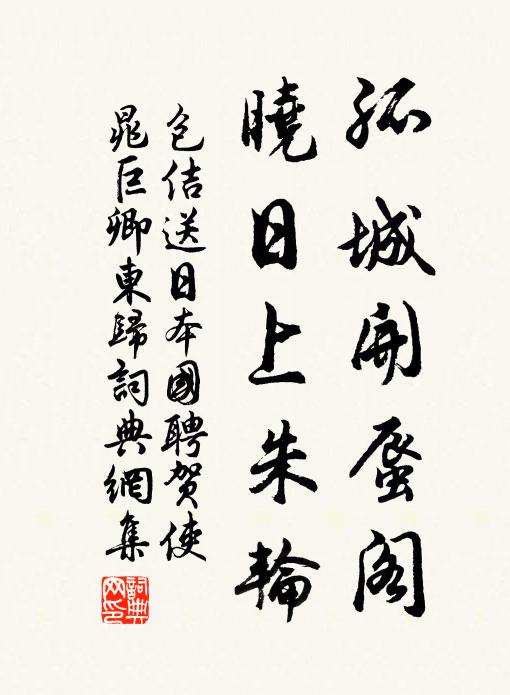 孤城開蜃阁
曉日上朱輪
包佶送日本國聘贺使
晁巨卿東歸詞典網集
詞典网印